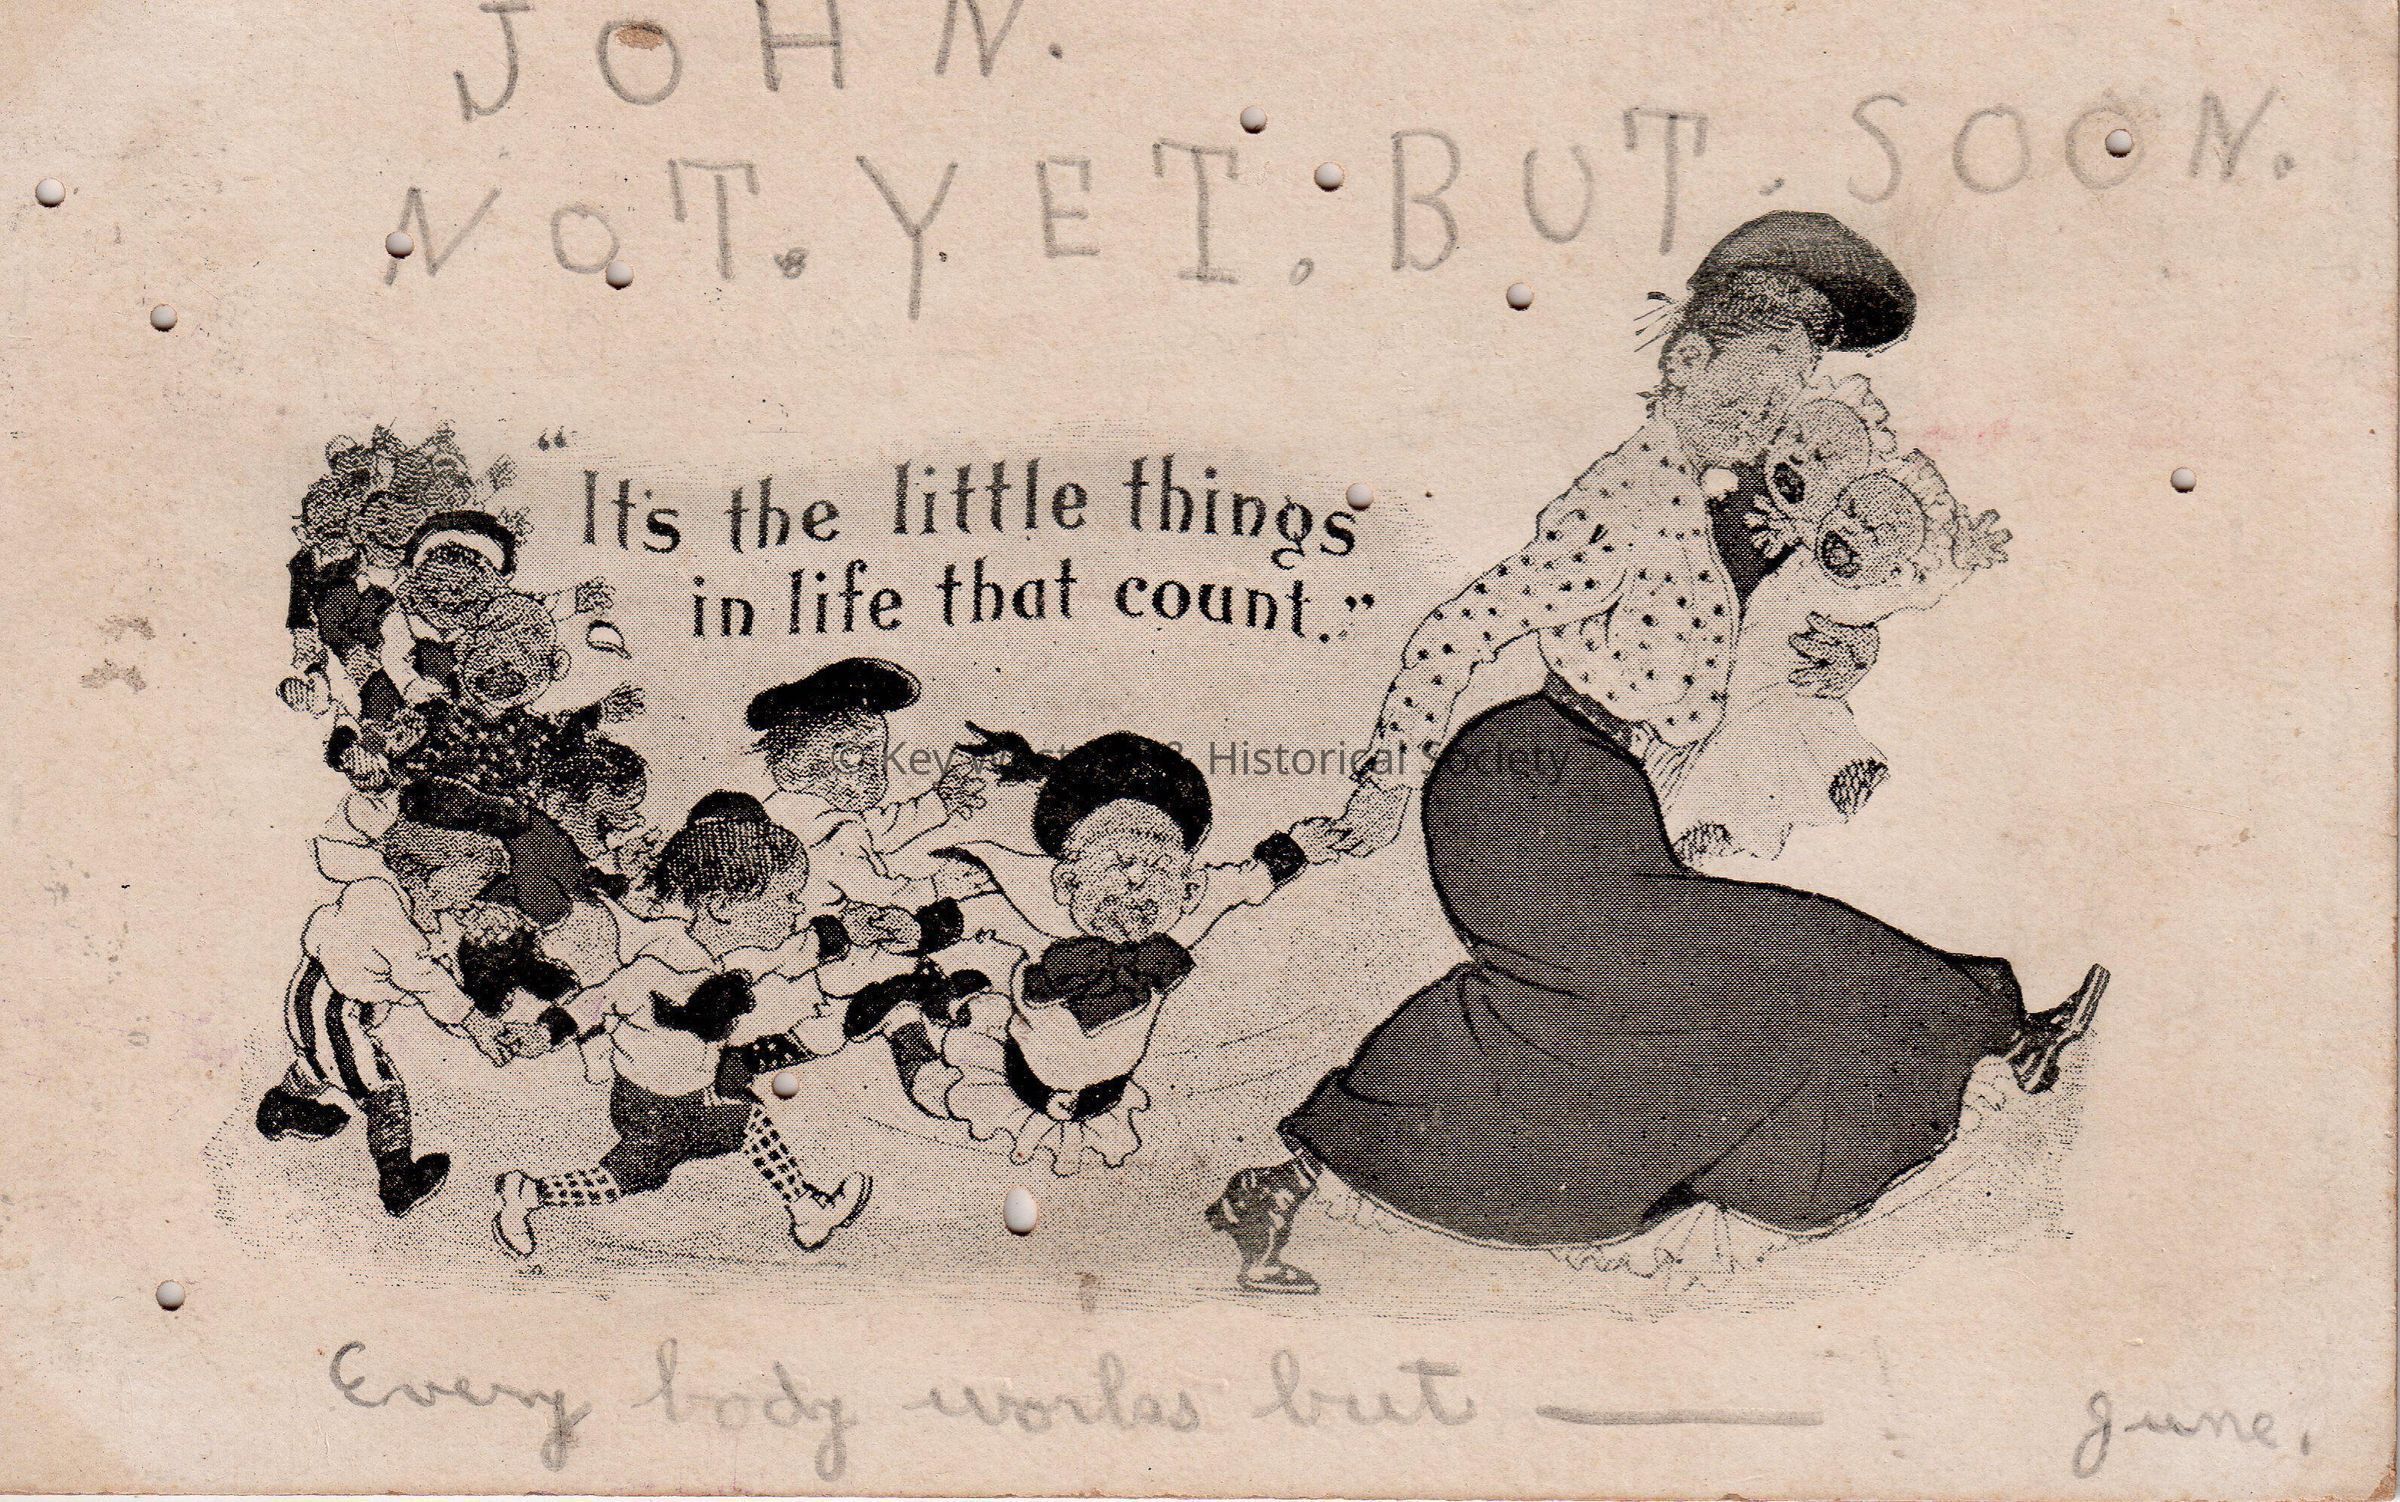 JOHN.
NOT. YET. BUT. SOON.
"It's the little things
in life that count."
© Key West Art & Historical Society
Every body works but —
June.